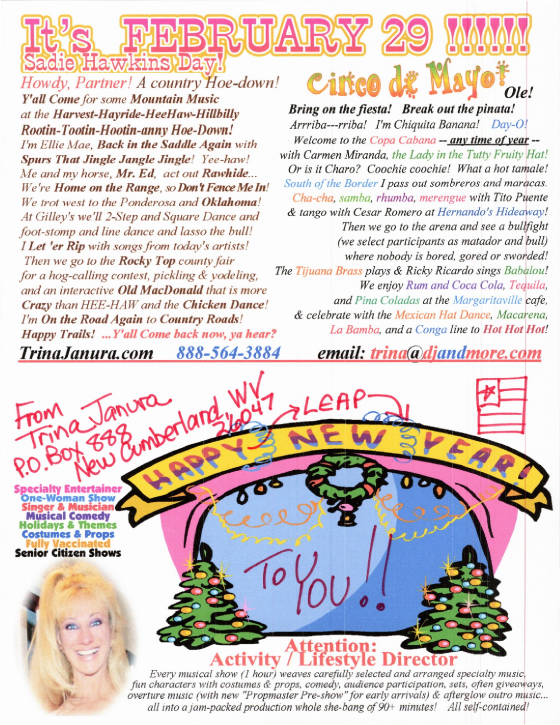 It's FEBRUARY 29 !!!!!!
Sadie Hawkins Day!
Howdy, Partner! A country Hoe-down!
Y'all Come for some Mountain Music
at the Harvest-Hayride-HeeHaw-Hillbilly
Rootin-Tootin-Hootin-anny Hoe-Down!
I'm Ellie Mae, Back in the Saddle Again with
Spurs That Jingle Jangle Jingle! Yee-haw!
Me and my horse, Mr. Ed, act out Rawhide...
We're Home on the Range, so Don't Fence Me In!
We trot west to the Ponderosa and Oklahoma!
At Gilley's we'll 2-Step and Square Dance and
foot-stomp and line dance and lasso the bull!
I Let 'er Rip with songs from today's artists!
Then we go to the Rocky Top county fair
for a hog-calling contest, pickling & yodeling,
and an interactive Old MacDonald that is more
Crazy than HEE-HAW and the Chicken Dance!
I'm On the Road Again to Country Roads!
Happy Trails! ...Y'all Come back now, ya hear?
Cinco de Mayo!
Ole!
Bring on the fiesta! Break out the pinata!
Arrriba---rriba! I'm Chiquita Banana! Day-O!
Welcome to the Copa Cabana -- any time of year --
with Carmen Miranda, the Lady in the Tutty Fruity Hat!
Or is it Charo? Coochie coochie! What a hot tamale!
South of the Border I pass out sombreros and maracas.
Cha-cha, samba, rhumba, merengue with Tito Puente
& tango with Cesar Romero at Hernando's Hideaway!
Then we go to the arena and see a bullfight
(we select participants as matador and bull)
where nobody is bored, gored or sworded!
The Tijuana Brass plays & Ricky Ricardo sings Babalou!
We enjoy Rum and Coca Cola, Tequila,
and Pina Coladas at the Margaritaville cafe,
& celebrate with the Mexican Hat Dance, Macarena,
La Bamba, and a Conga line to Hot Hot Hot!
TrinaJanura.com 888-564-3884 email: trina@djandmore.com
From
Trina Janura
P.O. Box 888
New Cumberland WV
26047
LEAP
HAPPY NEW YEAR!
Specialty Entertainer
One-Woman Show
Singer & Musician
Musical Comedy
Holidays & Themes
Costumes & Props
Fully Vaccinated
Senior Citizen Shows
To YOU!!
Attention:
Activity / Lifestyle Director
Every musical show (1 hour) weaves carefully selected and arranged specialty music,
fun characters with costumes & props, comedy, audience participation, sets, often giveaways,
overture music (with new "Propmaster Pre-show" for early arrivals) & afterglow outro music...
all into a jam-packed production whole she-bang of 90+ minutes! All self-contained!